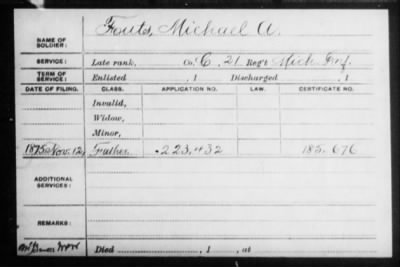 NAME OF SOLDIER: Fouts, Michael A.
SERVICE: Late rank, Co. C, 21 Reg't Mich Inf.
TERM OF SERVICE: Enlisted , 1 Discharged , 1
DATE OF FILING. CLASS. APPLICATION NO. LAW. CERTIFICATE NO.
Invalid,
Widow,
Minor,
1875 Nov. 12, Father 223,432 185,676
ADDITIONAL SERVICES:
REMARKS:
Died , 1 , at